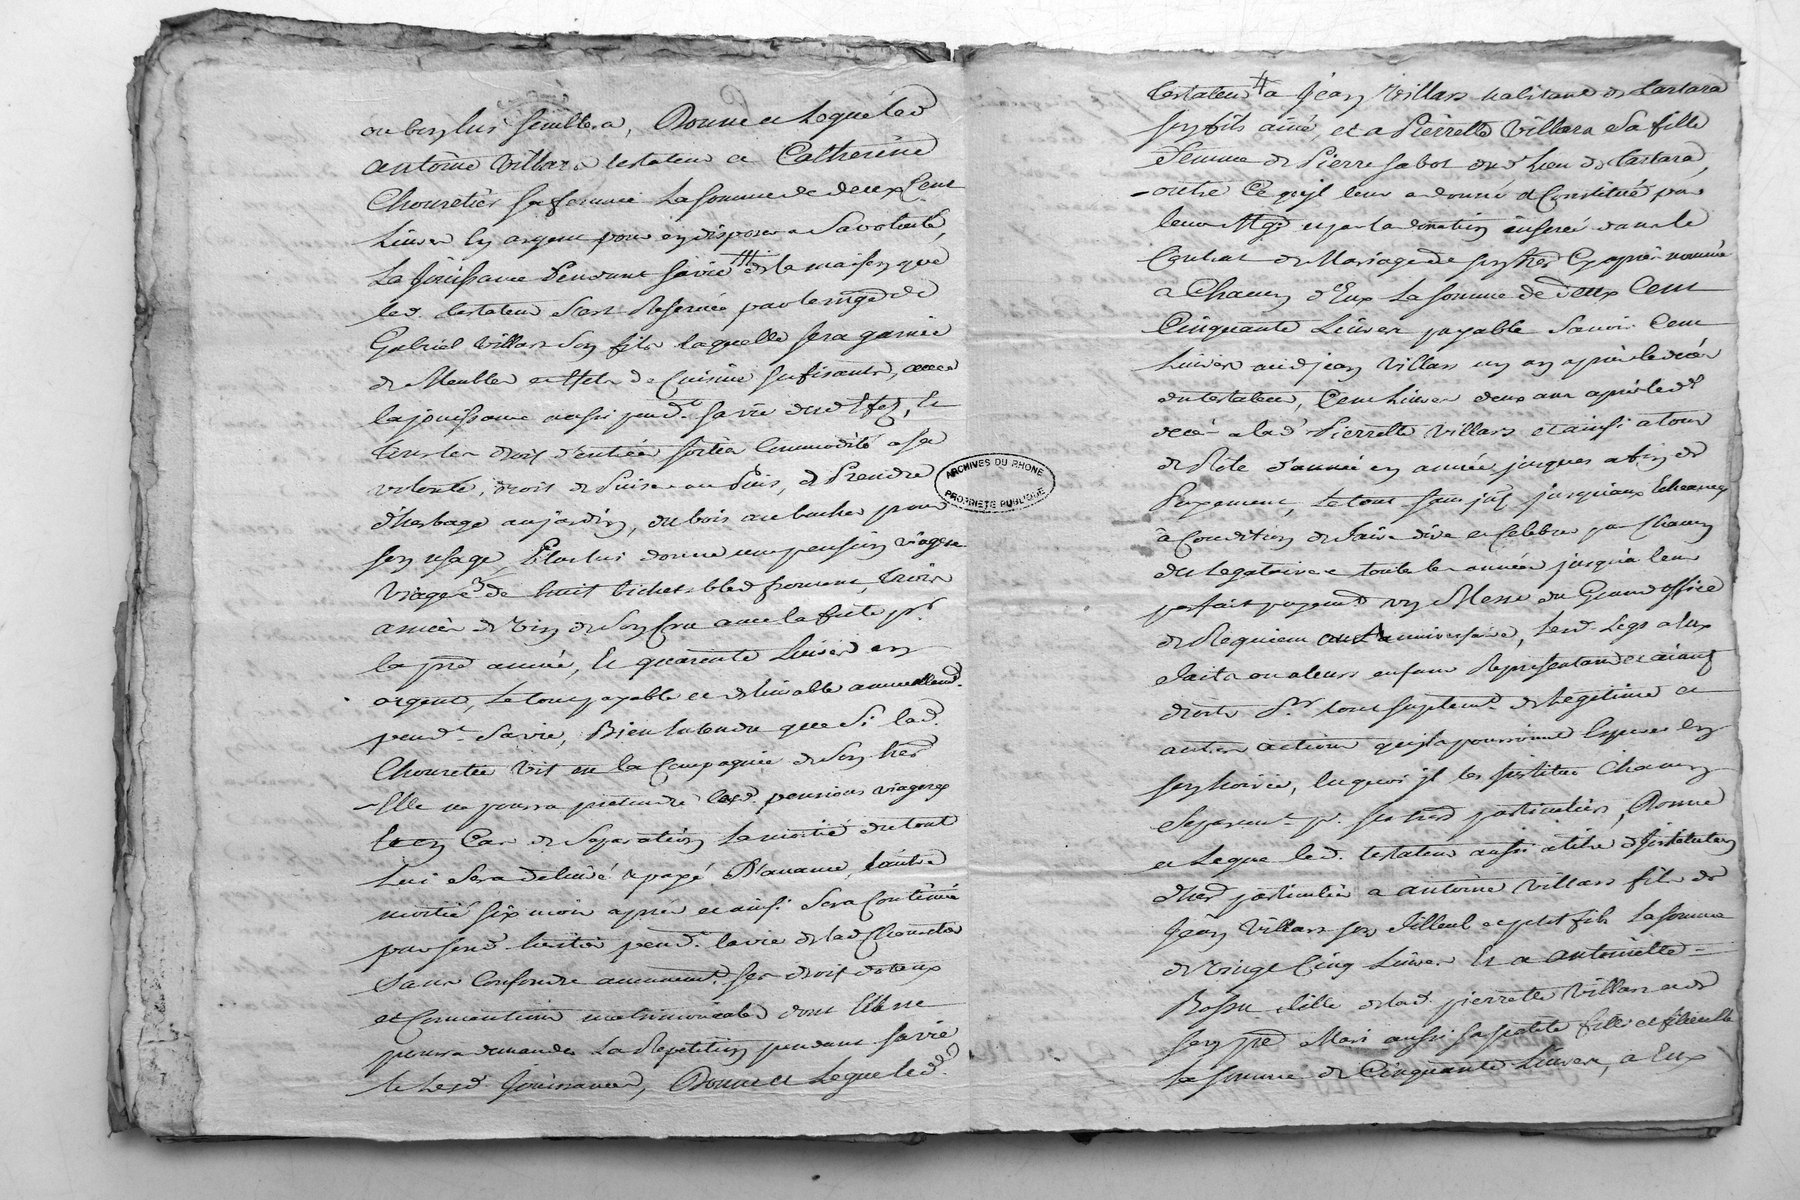 ou bon lui semblera, Donne et Legue led
antoine Villars testateur a Catherine
Chouretier sa femme La somme de deux Cent
Livres En argent pour en disposer a Sa volonté,
La Jouissance Pendant sa vie # de la maison que
led. testateur s'est Reservée par le mge de
Gabriel Villars Son fils laquelle sera garnie
de Meubles et effets de Cuisine sufisants, avec
la jouissance aussi pendt. sa vie du
tous les droits d'entrée sortie Commodité a sa
volonté, droit de Puiser au Puis, de Prendre
d'herbage au jardin, du bois au bucher pour
son usage, Plus lui donne une pension viagere
Viagere de huit bichets bled froment, trois
anées de vin de Son Cru avec la futé pr.
la pre année, Et quarante Livres en
argent, Le tout payable et delivrable annuellemt.
pendt. Sa vie, Bien Entendu que Si lad.
Chouretier vit en la Compagnie de Son her
Elle ne pourra pretendre lesd. pensions viageres
Et en Cas de Separation La moitié du tout
Lui Sera delivré & payé D'avance, L'autre
moitié six mois après et ainsi Sera Continué
par sond. heritier pendt. la vie de lad Chouretier
Sans Confondre aucunemt. ses droits dotaux
et Conventions matrimoniales dont Elle ne
pourra demander La Repetition pendant sa vie
& Lesd. Jouissances, Donne et Legue led.
testateur # a Jean Villars habitant de Tarara
son fils ainé, et a Pierrette Villars Sa fille
Femme de Pierre Sabot dud. lieu de Tarara,
outre Ce qu'il leur a donné et Constitué par
leur Mge. et par la donation inserée dans le
Contrat de Mariage de son her Cy après nommé
a Chacun d'Eux La somme de deux Cent
Cinquante Livres payable Savoir Cent
Livres aud jean Villars un an après le décès
du testateur, Cent Livres deux ans après led
décès a lad Pierrette Villars et ainsi a tour
de Rôle d'année en année jusques a fin de
Payement, Le tout sans jusqu'aux Echeances
à Condition de faire dire et Celebrer par Chacun
des Legataires toutes les années jusqu'à leur
parfait payement une Messe du Grand office
de Requiem Anniversaire, Lesd. Legs a Eux
faits ou a leurs enfans Representans et aiants
droits Pr. tous suplemt. de Legitime et
autres actions qu'ils pourroient Esperer En
son hoirie, En quoi il les Institue Chacun
Separemt. pr. ses hers particuliers, Donne
et Legue led. testateur aussi a titre d'Institution
d'her particulier a antoine Villars fils de
Jean Villars son filleul et petit fils La somme
de vingt Cinq Livres Et a antoinette
Bossu fille de lad. pierrette Villars et de
son pre Mari aussi sa petite fille et filleulle
La somme de Cinquante Livres, a Eux
ARCHIVES DU RHONE
PROPRIETE PUBLIQUE